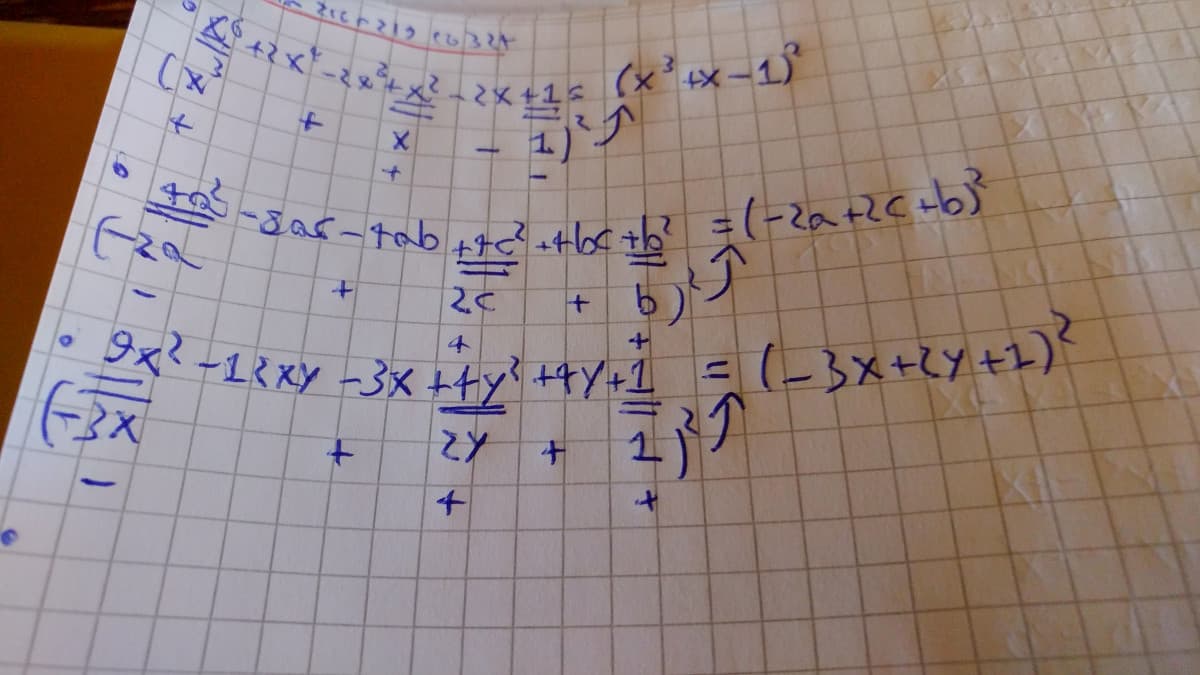 x⁶+2x⁴-2x³+x²-2x+1= (x³+x-1)²
(x³ x - 1)²
+ + + -
4a² -8ac-4ab +4c² +4bc +b² =(-2a+2c+b)²
(-2a + 2c + b)²
- + +
9x² -12xy -3x +4y² +4y+1 = (-3x+2y+1)²
(-3x + 2y + 1)²
- + +